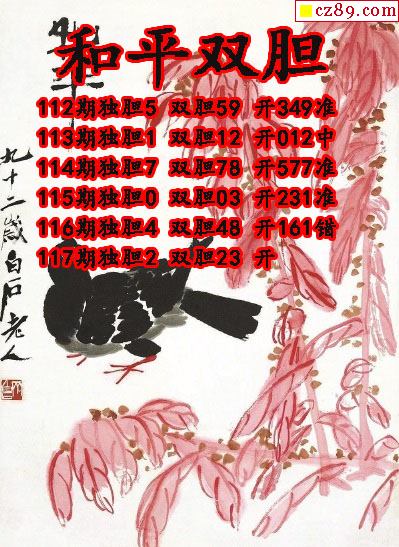 cz89.com
和平双胆
112期独胆5 双胆59 开349准
113期独胆1 双胆12 开012中
114期独胆7 双胆78 开577准
115期独胆0 双胆03 开231准
116期独胆4 双胆48 开161错
117期独胆2 双胆23 开
九十二岁白石老人